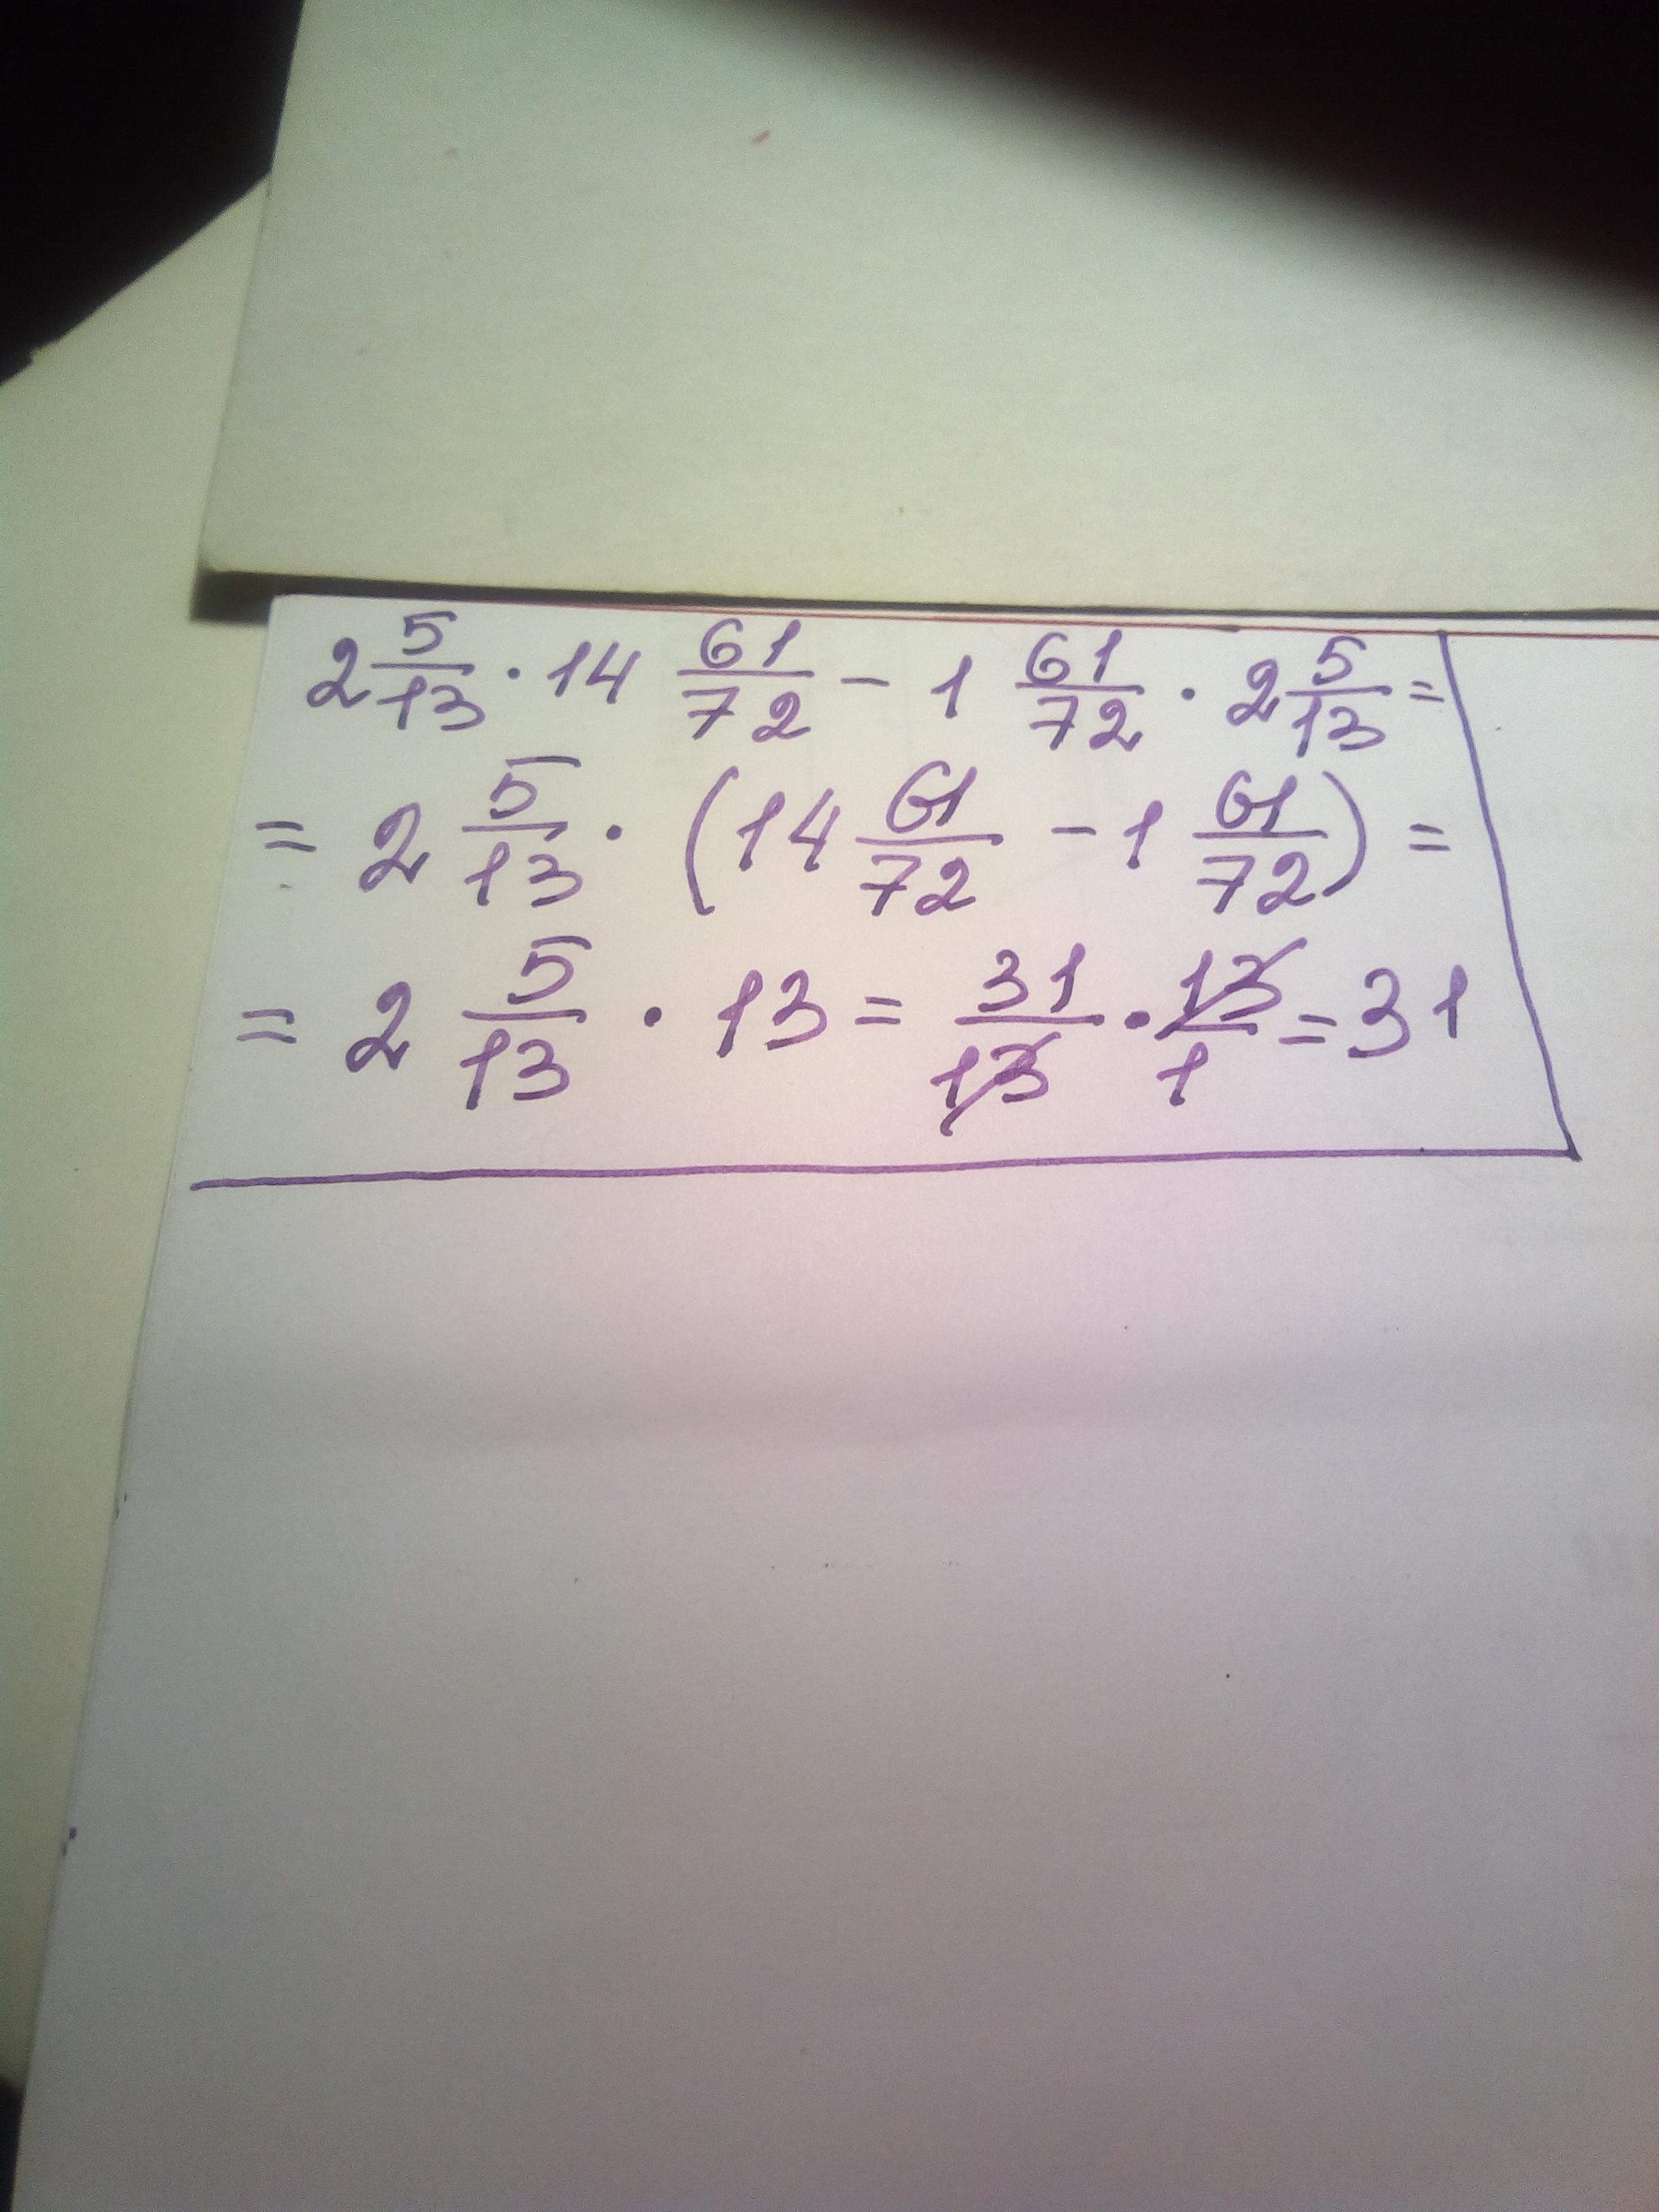 2 5/13 · 14 61/72 - 1 61/72 · 2 5/13 =
= 2 5/13 · (14 61/72 - 1 61/72) =
= 2 5/13 · 13 = 31/13 · 13/1 = 31